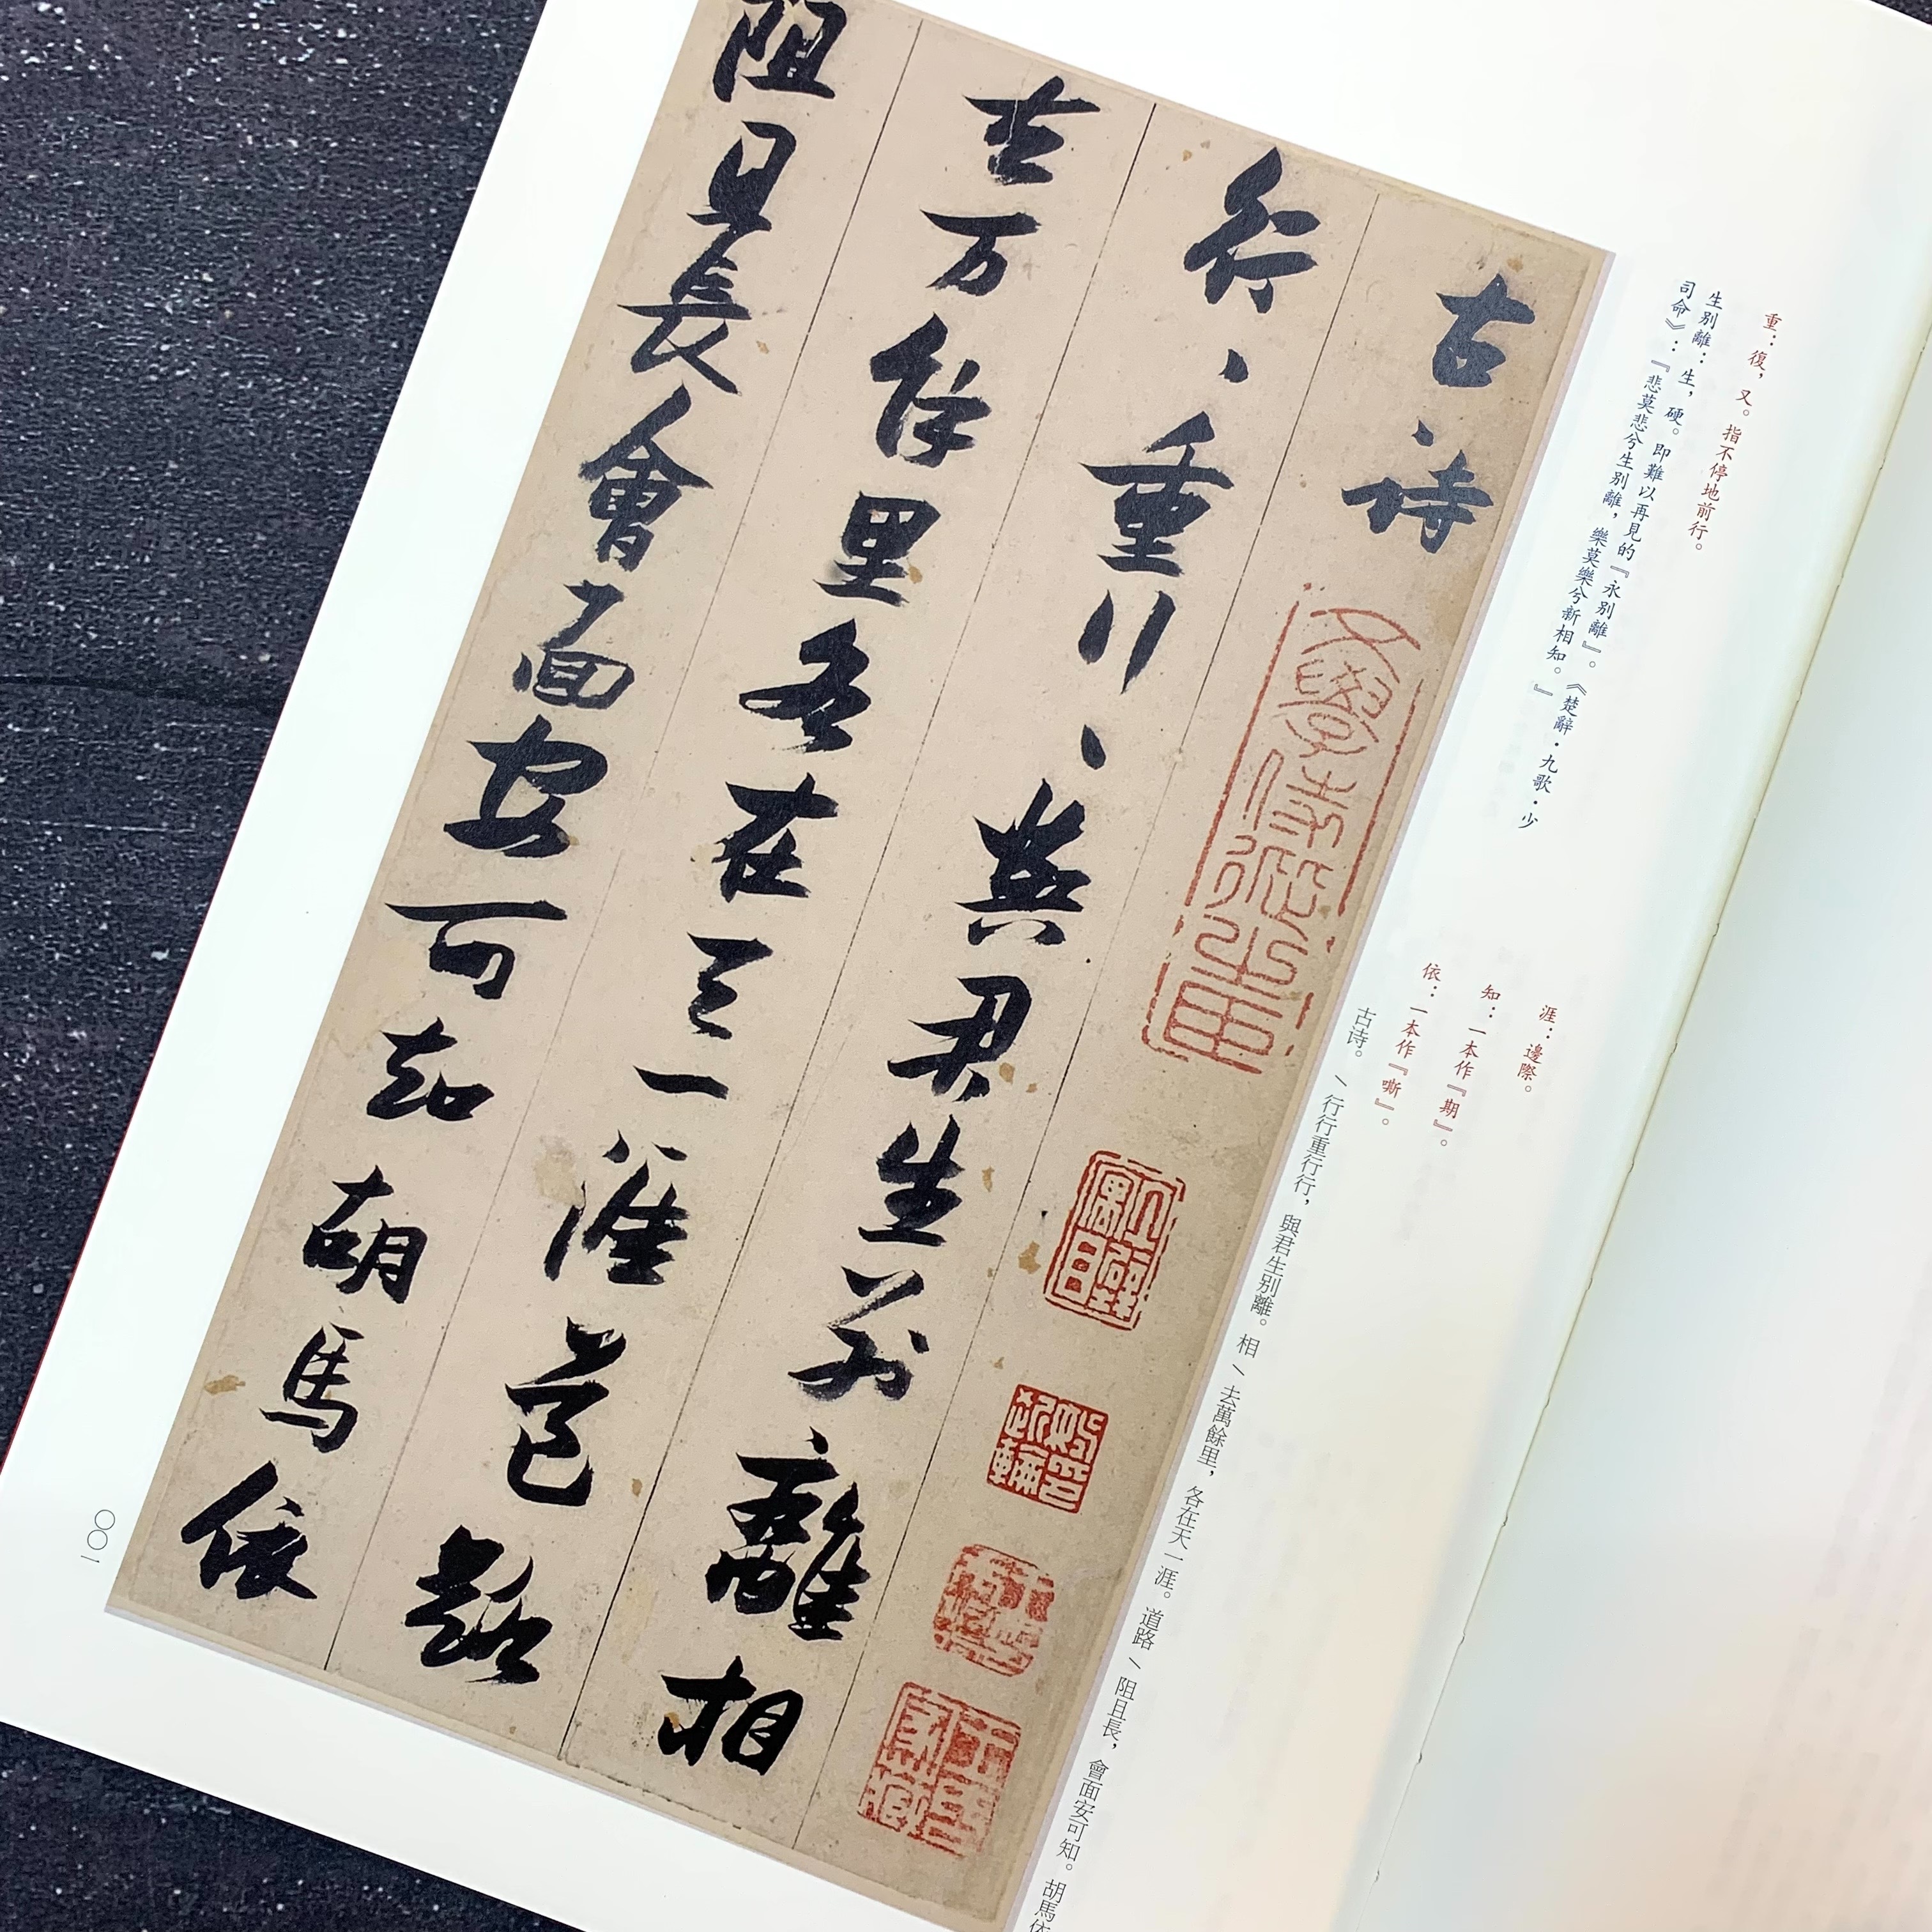 重：復，又。指不停地前行。
生别離：生，硬。即難以再見的『永别離』。《楚辭·九歌·少
司命》：『悲莫悲兮生别離，樂莫樂兮新相知。』
涯：邊際。
知：一本作『期』。
依：一本作『嘶』。
古诗。/行行重行行，與君生别離。相/去萬餘里，各在天一涯。道路/阻且長，會面安可知。胡馬依
古詩
行、重行、與君生別離相
去万餘里各在天一涯道路
阻且長會面安可知胡馬依
〇〇一